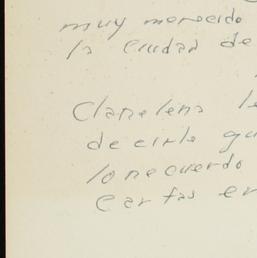 muy merecido
la ciudad de
Clarelena le
decirle qu
lo recuerdo
Cartas en